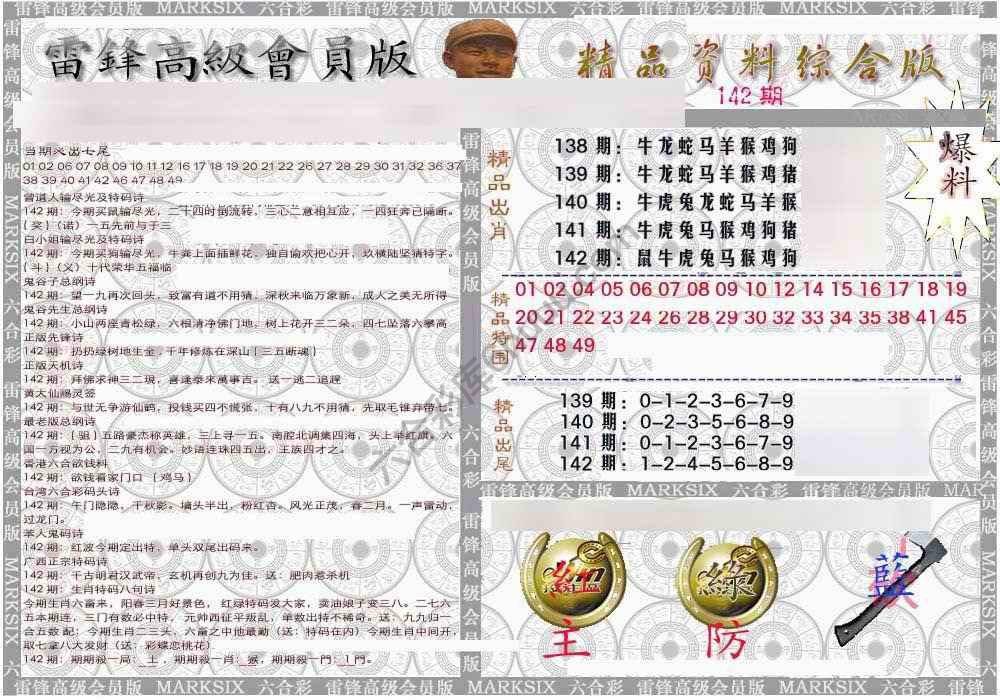 雷锋高级会员版 MARKSIX 六合彩 雷锋高级会员版 MARKSIX 六合彩 雷锋高级会员版 MARKSIX 六合彩 雷锋高级会员版
雷鋒高級會員版
精品资料综合版
142 期
爆料
当期灵出七尾
01 02 06 07 08 09 10 11 12 16 17 18 19 20 21 22 26 27 28 29 30 31 32 36 37
38 39 40 41 42 46 47 48 49
曾道人输尽光及特码诗
142 期：今期买鼠输尽光，二十四时倒流转，三心二意相互应，一四狂奔已隔断。
{奖}（诺）一五先前与于三
白小姐输尽光及特码诗
142 期：今期买狗输尽光，牛粪上面插鲜花，独自偷欢把心开，玖横陆坚猜特字。
{斗}（义）十代荣华五福临
鬼谷子总纲诗
142 期：望一九再次回头，致富有道不用猜，深秋来临万象新，成人之美无所得
鬼谷先生总纲诗
142 期：小山两座青松绿，六根清净佛门地，树上花开三二朵，四七坠落六攀高
正版先锋诗
142 期：扔扔绿树地生金，千年修炼在深山{三五断魂}
正版天机诗
142 期：拜佛求神三二現，喜逢泰来萬事吉。送一逃二追趕
黄大仙赐灵签
142 期：与世无争游仙鹤，投钱买四不慌张，十有八九不用猜，先取毛锥弃带七。
最老版总纲诗
142 期：{诅}五路豪杰称英雄，三上寻一五。南腔北调集四海，头上举红旗。六
国一万视为公，二九有机会。妙语连珠四五出，王族四才之。
香港六合欲钱料
142 期：欲钱看家门口 {鸡马}
台湾六合彩码头诗
142 期：午门隐隐，千秋影。墙头半出，粉红杏。风光正茂，春二月。一声雷动，
过龙门。
苯人鬼码诗
142 期：红波今期定出特，单头双尾出码来。
广西正宗特码诗
142 期：千古明君汉武帝，玄机再创九为佳。送：肥肉惹杀机
142 期：生肖特码八句诗
今期生肖六畜来，阳春三月好景色，红绿特码发大家，卖油娘子变三八。二七六
五本期连，三门有数必中特，元帅西征平叛乱，单数出特不稀奇。送：九九归一
合五数配：今期生肖二三头，六畜之中他最勤（送：特码在内）今期生肖中间开，
取七拿八大发财（送：彩蝶恋桃花）
142 期：期期殺一局：土，期期殺一肖：猴，期期殺一門：1 門。
精品出肖
138 期：牛龙蛇马羊猴鸡狗
139 期：牛龙蛇马羊猴鸡猪
140 期：牛虎兔龙蛇马羊猴
141 期：牛虎兔马猴鸡狗猪
142 期：鼠牛虎兔马猴鸡狗
精品特围
01 02 04 05 06 07 08 09 10 12 14 15 16 17 18 19
20 21 22 23 24 26 28 29 30 32 33 34 35 38 41 45
47 48 49
精品出尾
139 期：0-1-2-3-6-7-9
140 期：0-2-3-5-6-8-9
141 期：0-1-2-3-6-7-9
142 期：1-2-4-5-6-8-9
雷锋高级会员版 MARKSIX 六合彩 雷锋高级会员版 MARKSIX
紅 綠 藍
主 防
雷锋高级会员版 MARKSIX 六合彩 雷锋高级会员版 MARKSIX 六合彩 雷锋高级会员版 MARKSIX 六合彩 雷锋高级会员版